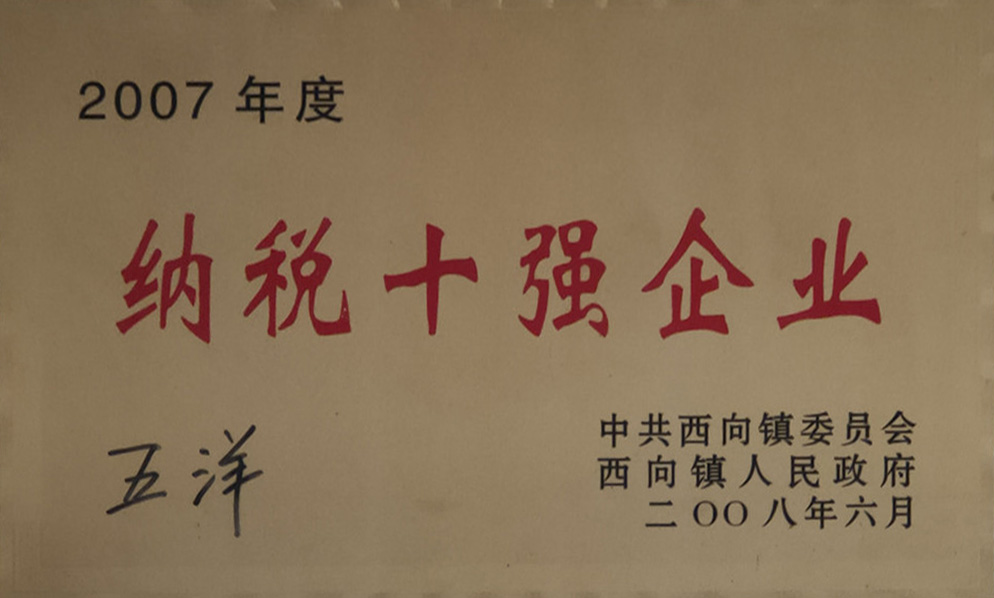 2007 年度
纳税十强企业
五洋
中共西向镇委员会
西向镇人民政府
二OO八年六月